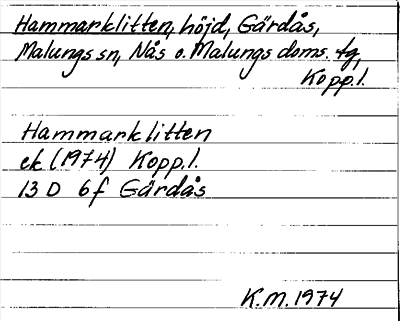 Hammarklitten, höjd, Gärdås,
Malungs sn, Nås o. Malungs doms. tg,
Kopp.l.
Hammarklitten
ek (1974) Kopp.l.
13 D 6f Gärdås
K.M. 1974